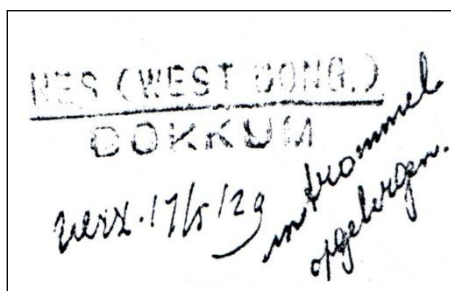 NES (WEST DONG.)
DOKKUM
verz. 17/5 '29
in trommel
opgeborgen.